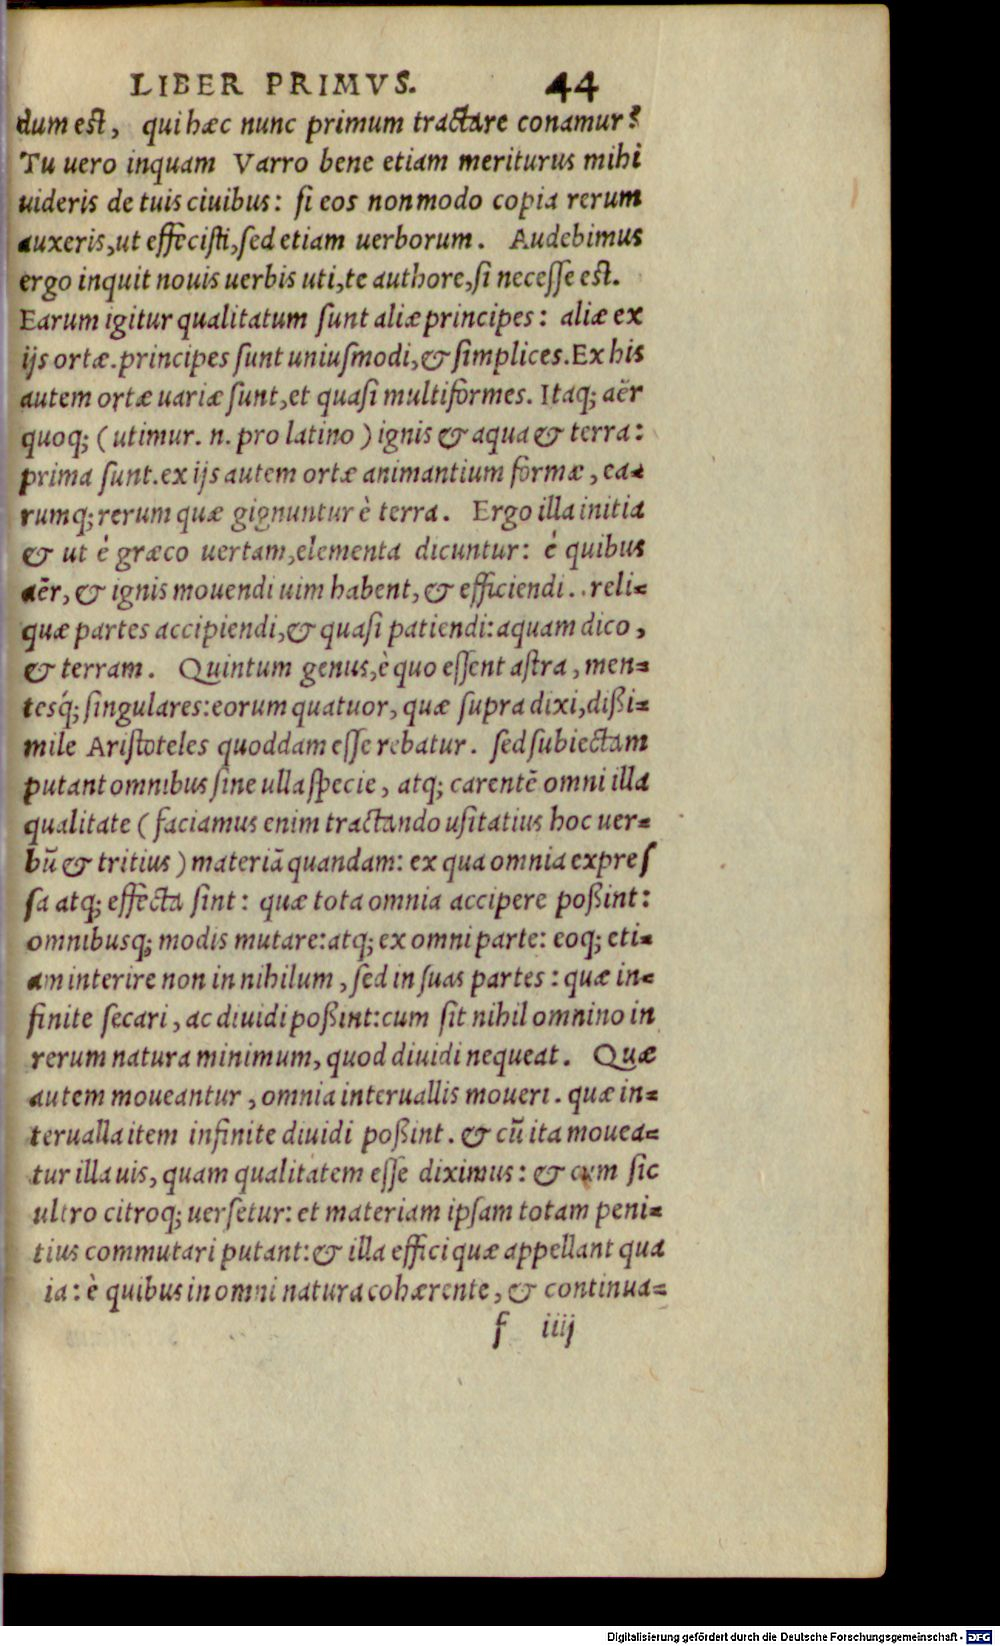 LIBER PRIMVS. 44
dum est, qui hæc nunc primum tractare conamur?
Tu uero inquam Varro bene etiam meriturus mihi
uideris de tuis ciuibus: ſi eos non modo copia rerum
auxeris, ut effeciſti, ſed etiam uerborum. Audebimus
ergo inquit nouis uerbis uti, te authore, ſi neceſſe eſt.
Earum igitur qualitatum ſunt aliæ principes: aliæ ex
ijs ortæ. principes ſunt uniuſmodi, & ſimplices. Ex his
autem ortæ uariæ ſunt, et quaſi multiformes. Itaq; aër
quoq; (utimur. n. pro latino) ignis & aqua & terra:
prima ſunt. ex ijs autem ortæ animantium formæ, ea=
rumq; rerum quæ gignuntur è terra. Ergo illa initia
& ut è græco uertam, elementa dicuntur: è quibus
aër, & ignis mouendi uim habent, & efficiendi.. reli=
quæ partes accipiendi, & quaſi patiendi: aquam dico,
& terram. Quintum genus, è quo eſſent aſtra, men=
tesq́; ſingulares: eorum quatuor, quæ ſupra dixi, dißi=
mile Ariſtoteles quoddam eſſe rebatur. ſed ſubiectam
putant omnibus ſine ulla ſpecie, atq; carentē omni illa
qualitate (faciamus enim tractando uſitatius hoc uer=
bū & tritius) materiā quandam: ex qua omnia expreſ
ſa atq; effecta ſint: quæ tota omnia accipere poßint:
omnibusq; modis mutare: atq; ex omni parte: eoq; eti=
am interire non in nihilum, ſed in ſuas partes: quæ in=
finite ſecari, ac diuidi poßint: cum ſit nihil omnino in
rerum natura minimum, quod diuidi nequeat. Quæ
autem moueantur, omnia interuallis moueri. quæ in=
terualla item infinite diuidi poßint. & cū ita mouea=
tur illa uis, quam qualitatem eſſe diximus: & cum ſic
ultro citroq; uerſetur: et materiam ipſam totam peni=
tius commutari putant: & illa effici quæ appellant qua
ia: è quibus in omni natura cohærente, & continua=
f iiij
Digitalisierung gefördert durch die Deutsche Forschungsgemeinschaft - DFG